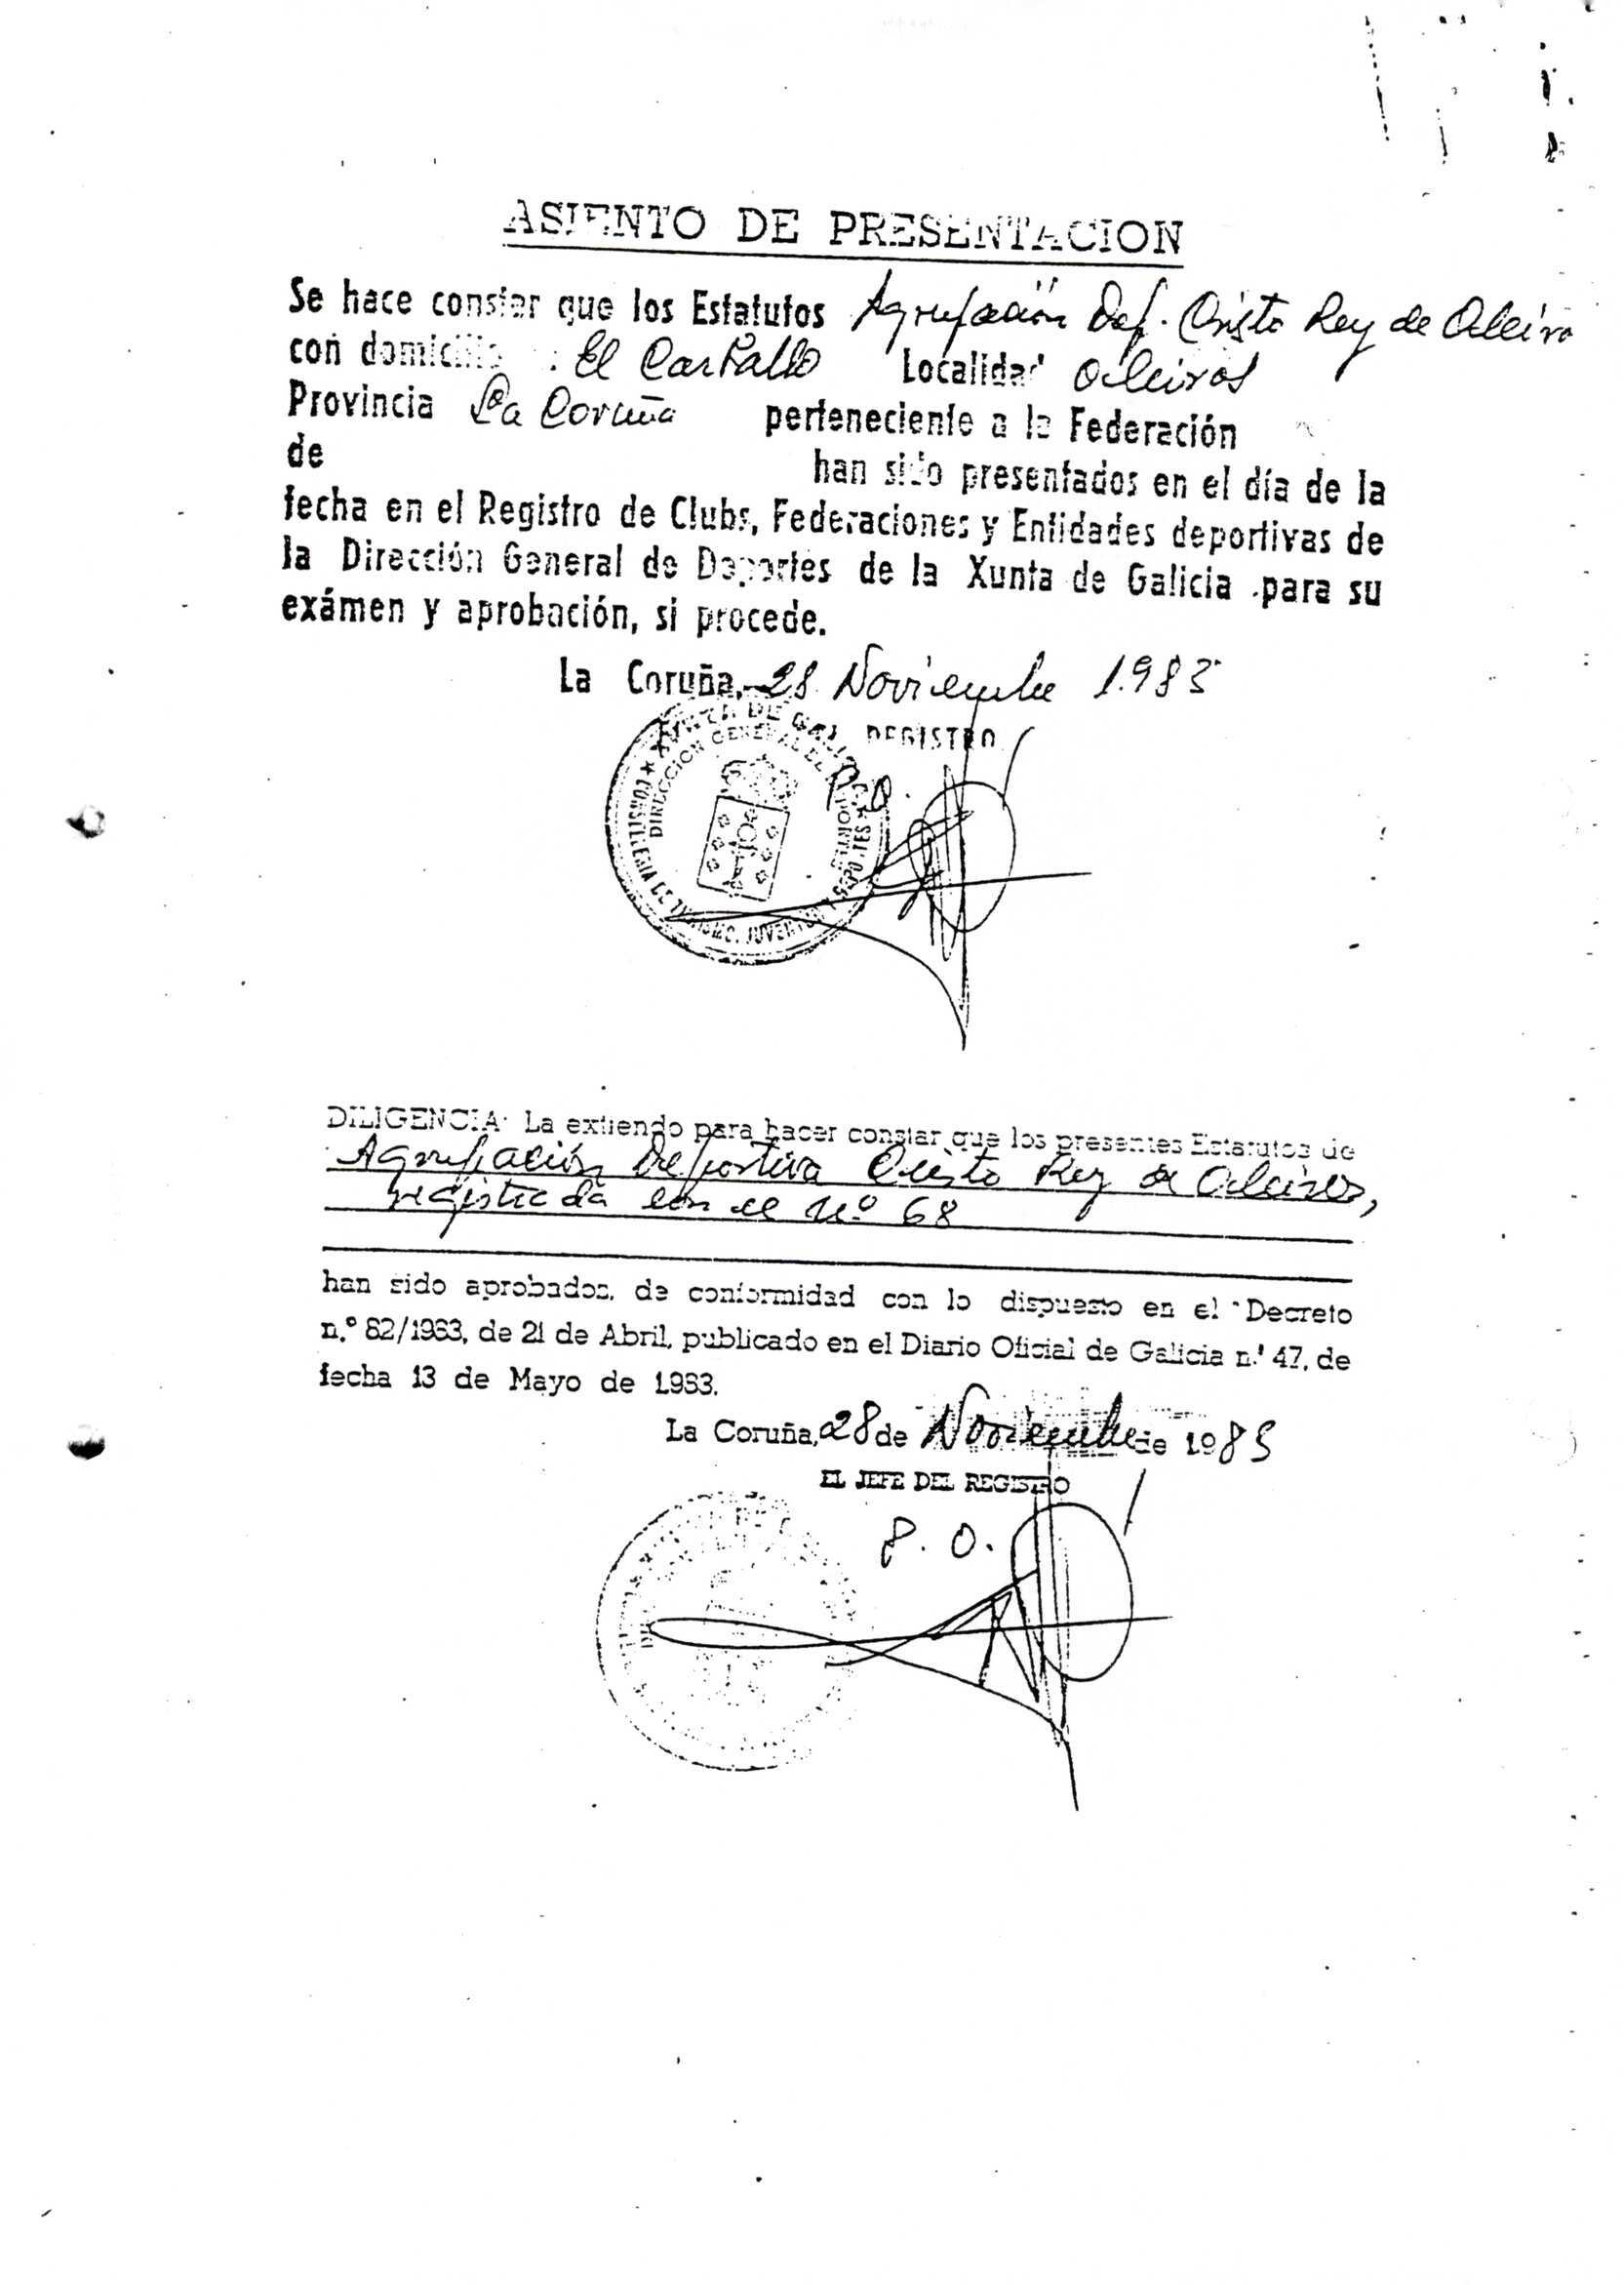 ASIENTO DE PRESENTACION
Se hace constar que los Estatutos Agrupación Dep. Cristo Rey de Oleiro
con domicilio El Carballo Localidad Oleiros
Provincia La Coruña perteneciente a la Federación
de han sido presentados en el día de la
fecha en el Registro de Clubs, Federaciones y Entidades deportivas de
la Dirección General de Deportes de la Xunta de Galicia para su
exámen y aprobación, si procede.
La Coruña, 28 Noviembre 1.983
REGISTRO
P.O.
XUNTA DE GALICIA
DIRECCION GENERAL DE
CONSELLERIA DE TURISMO, JUVENTUD Y DEPORTES
DILIGENCIA: La extiendo para hacer constar que los presentes Estatutos de
Agrupación Deportiva Cristo Rey de Oleiros,
registrada con el nº 68
han sido aprobados, de conformidad con lo dispuesto en el Decreto
n.º 82/1983, de 21 de Abril, publicado en el Diario Oficial de Galicia n.º 47, de
fecha 13 de Mayo de 1.983.
La Coruña, 28 de Noviembre de 1983
EL JEFE DEL REGISTRO
P. O.